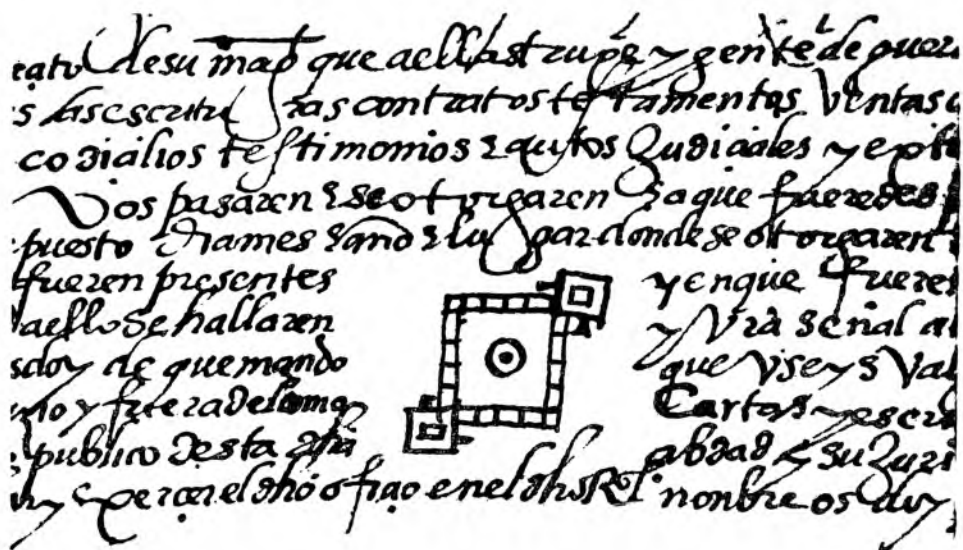 de su magd que a ellas trupe y gente de guer
s las escritu ras contratos testamentos Ventas
codicilios testimonios z autos Judiciales y
Vos pasaren z se otorgaren z a que fueredes
puesto dia mes z año z lugar donde se otorgaren
fueren presentes y en que fueren
a ello se hallaren y Vra señal a
sdoy de que mando que Vseys Val
y fuera de Cartas y escri
publico desta dha abdad z su Juri
exercer el dho ofiçio en el dho Rl nonbre os doy